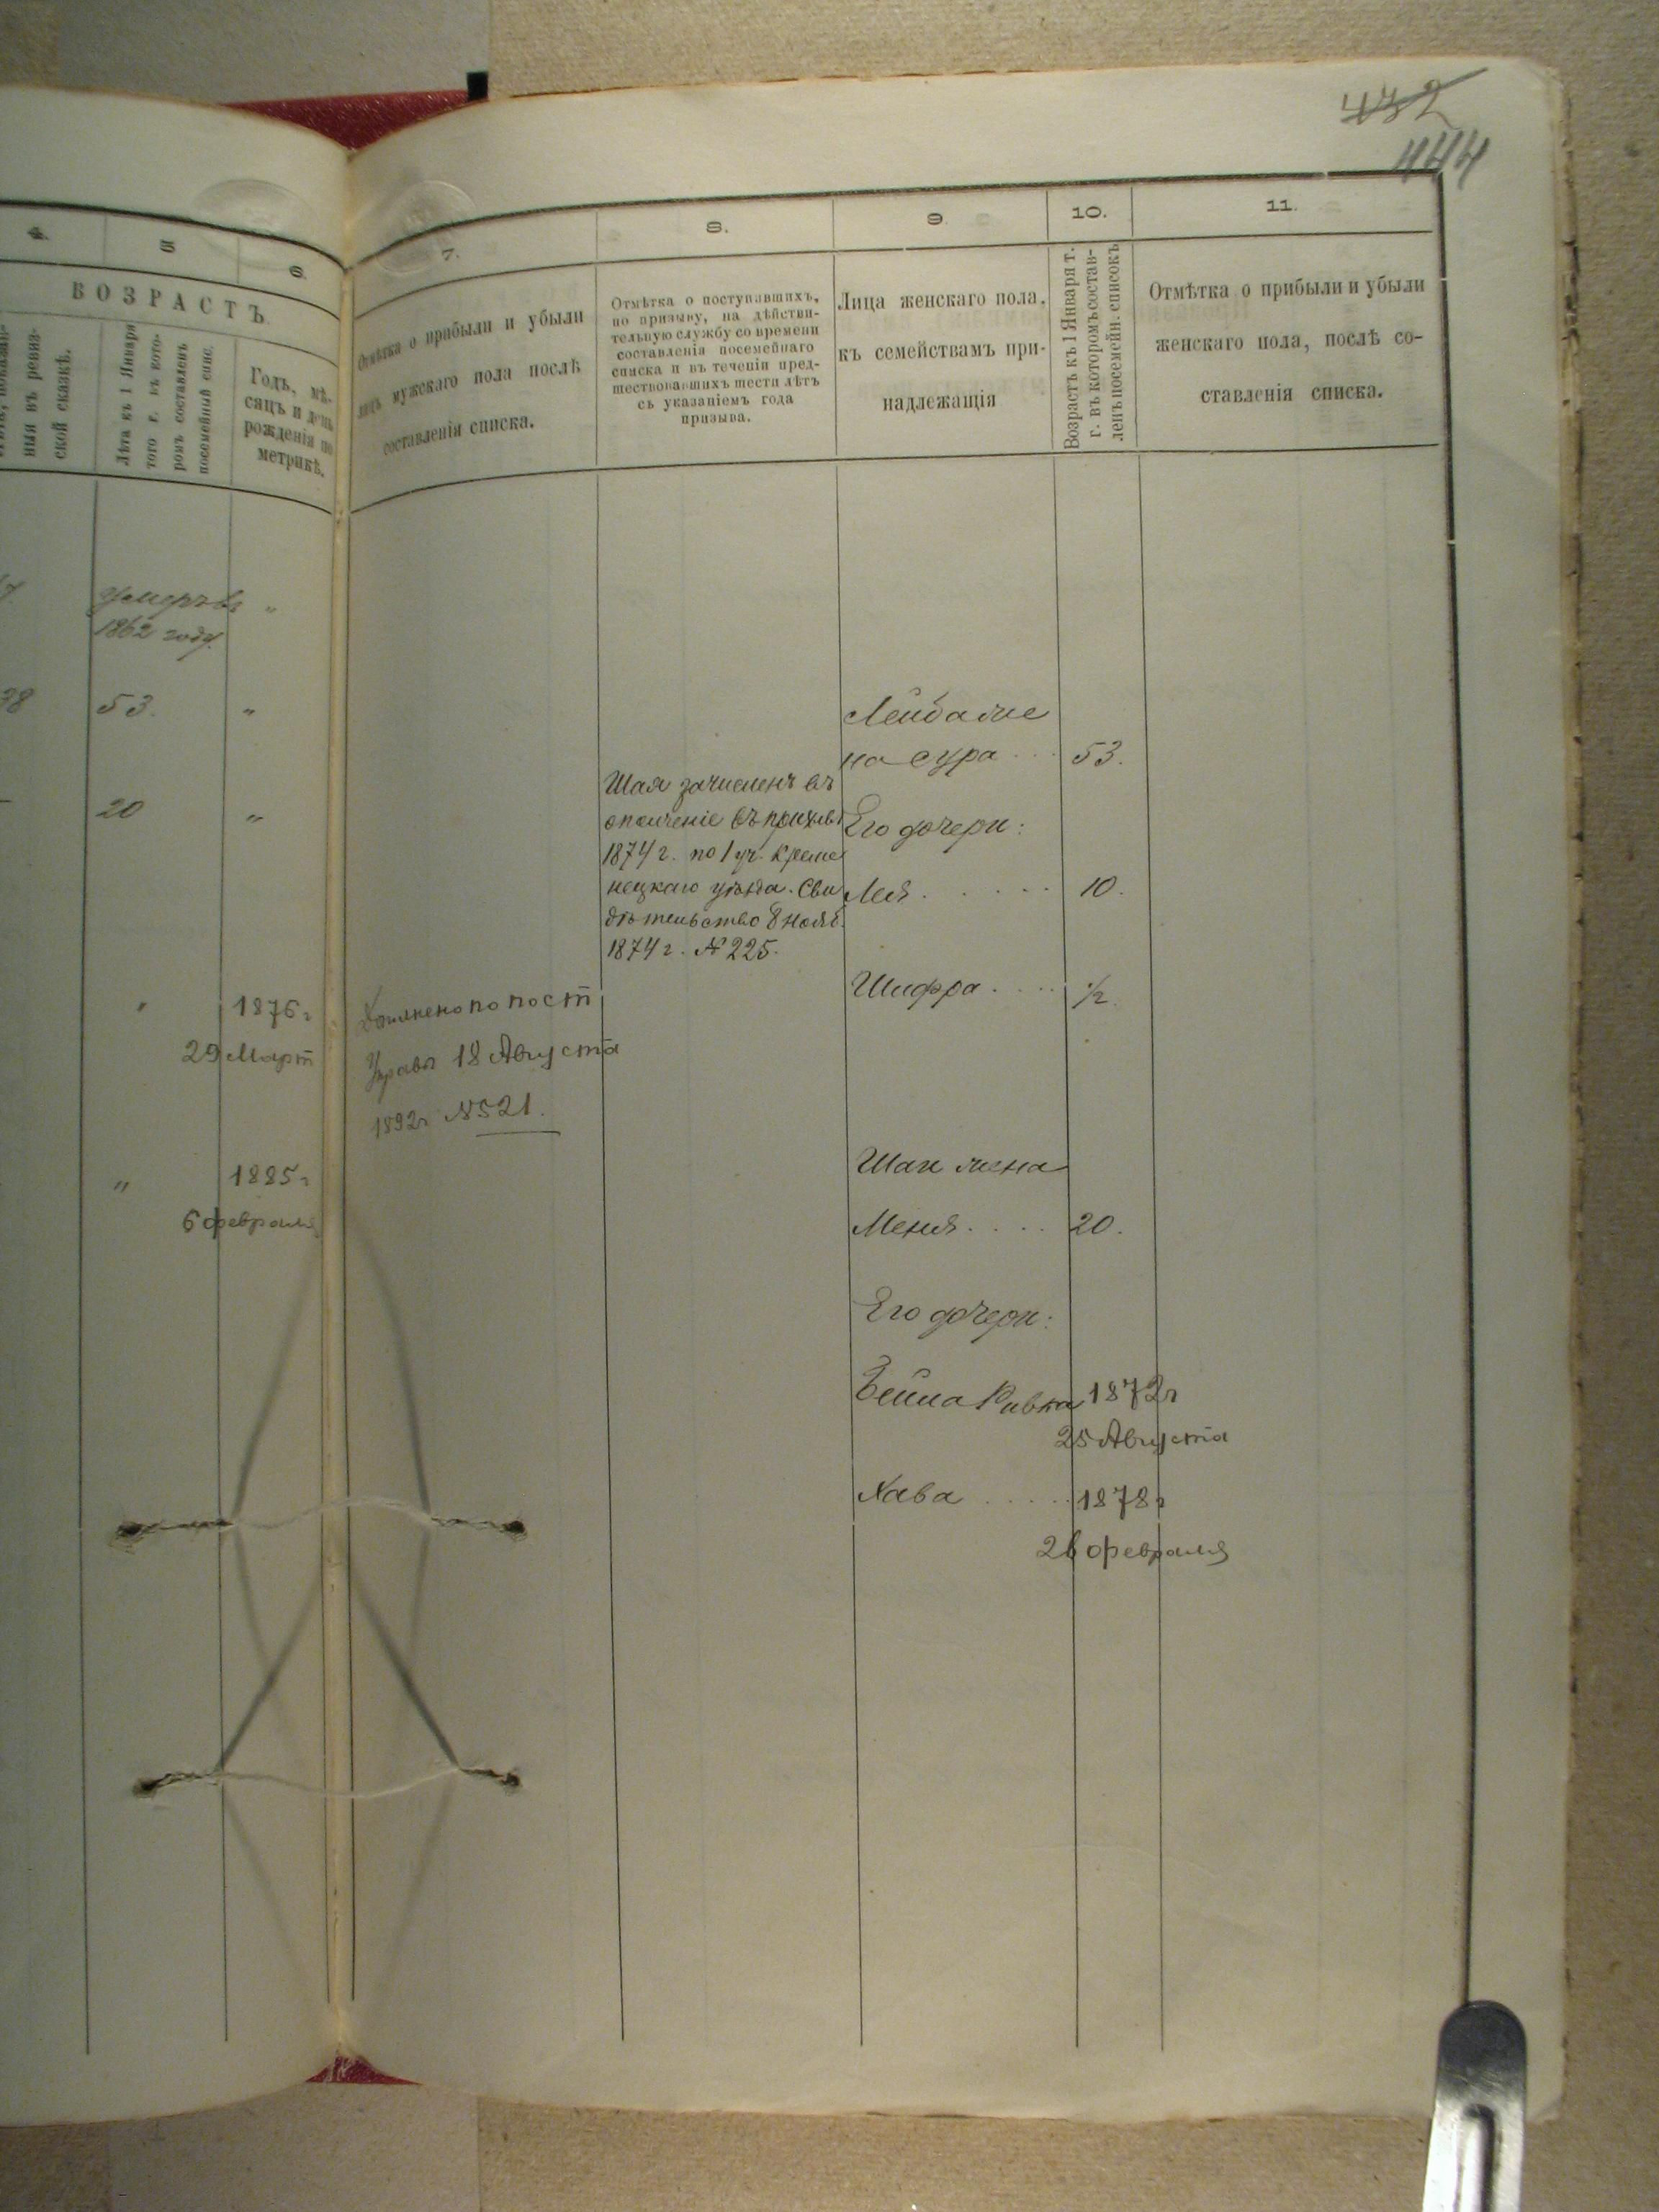 432
444
4.
5
6.
7.
8.
9
10.
11.
ВОЗРАСТЪ
ния въ ревиз-
ской сказкѣ.
Лѣта къ 1 Января
того г. въ кото-
ромъ составленъ
посемейный спис.
Годъ, мѣ-
сяцъ и день
рожденія по
метрикѣ.
Отмѣтка о прибыли и убыли
лицъ мужскаго пола послѣ
составленія списка.
Отмѣтка о поступавшихъ,
по призыву, на дѣйстви-
тельную службу со времени
составленія посемейнаго
списка и въ теченіи пред-
шествовавшихъ шести лѣтъ
съ указаніемъ года
призыва.
Лица женскаго пола,
къ семействамъ при-
надлежащія
Возрастъ къ 1 Января т.
г. въ которомъ состав-
ленъ посемейн. списокъ
Отмѣтка о прибыли и убыли
женскаго пола, послѣ со-
ставленія списка.
умеръ въ "
1862 году.
53. "
20 "
" 1876 г
29 Март
" 1885 г
6 февраля
Дополнено по пост
Управы 18 Августа
1892 г №521.
Шая зачисленъ въ
ополченіе въ призывъ
1874 г. по 1 уч. Креме
нецкаго уѣзда. Сви
дѣтельство 8 Нояб.
1874 г. № 225.
Лейба же
на Сура ... 53.
Его дочери:
Лея ..... 10.
Шифра .... ½.
Шаи жена
Меня .... 20.
Его дочери:
Бейла Ривка 1872 г
25 Августа
Хава ..... 1878 г
26 февраля